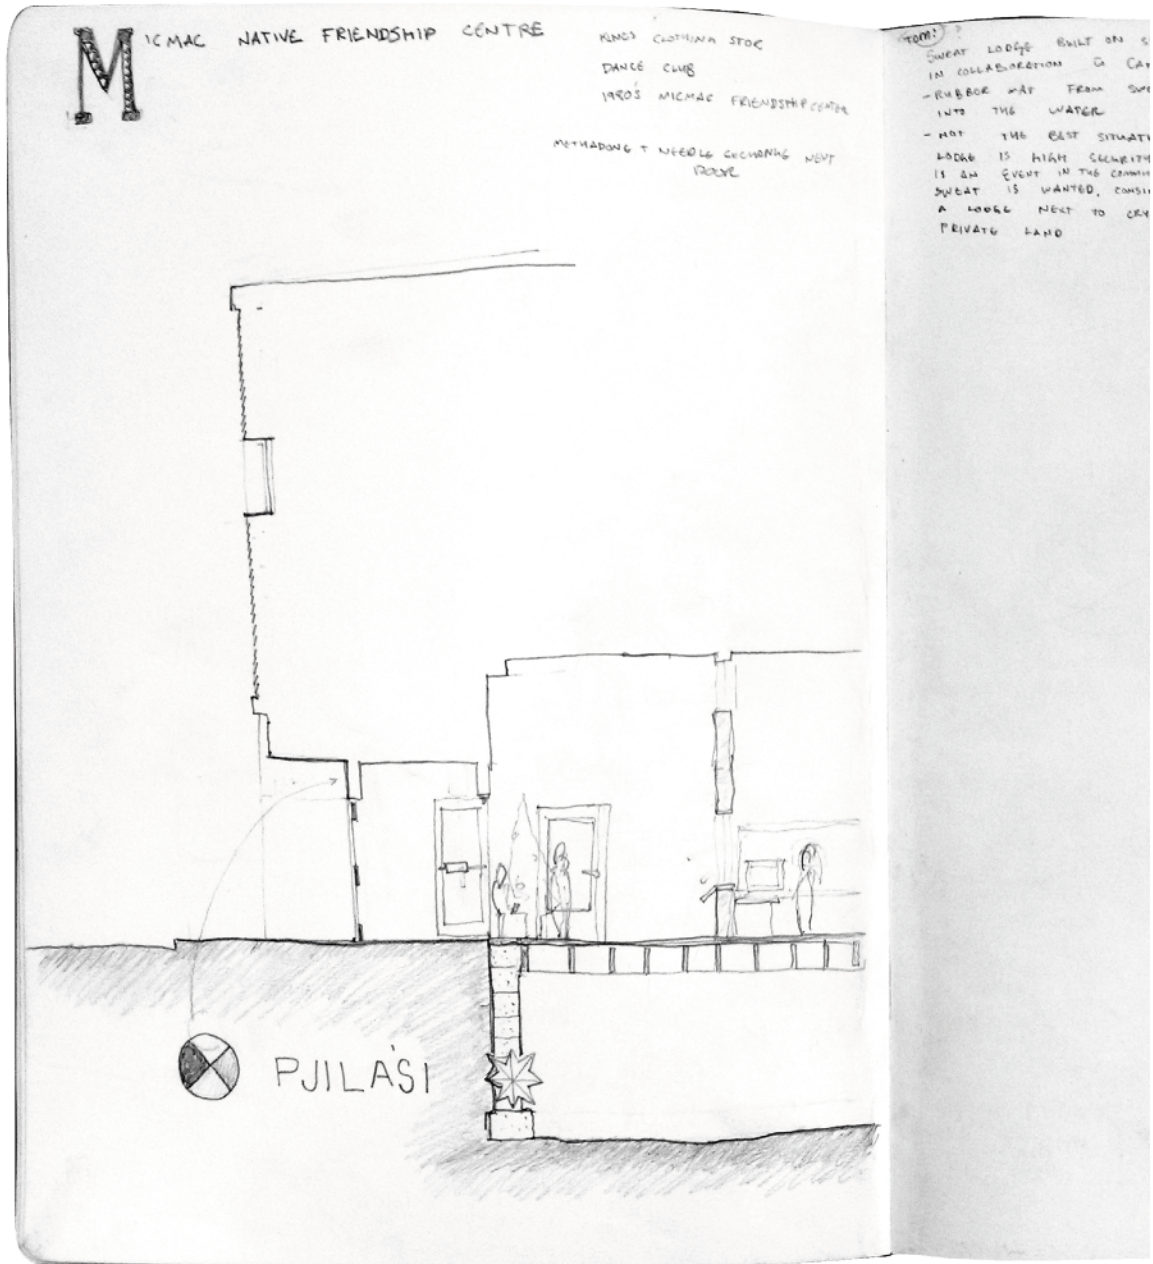 MICMAC NATIVE FRIENDSHIP CENTRE
KINGS CLOTHING STOR
DANCE CLUB
1980'S MICMAC FRIENDSHIP CENTER
METHADONE + NEEDLE EXCHANGE NEXT
DOOR
TOM:
SWEAT LODGE BUILT ON S
IN COLLABORATION CA
- RUBBOR MAT FROM SWE
INTO THE WATER
- NOT THE BEST SITUAT
LODGE IS HIGH SECURITY
IS AN EVENT IN THE COMMU
SWEAT IS WANTED, CONSI
A LODGE NEXT TO CRY
PRIVATE LAND
PJILA'SI